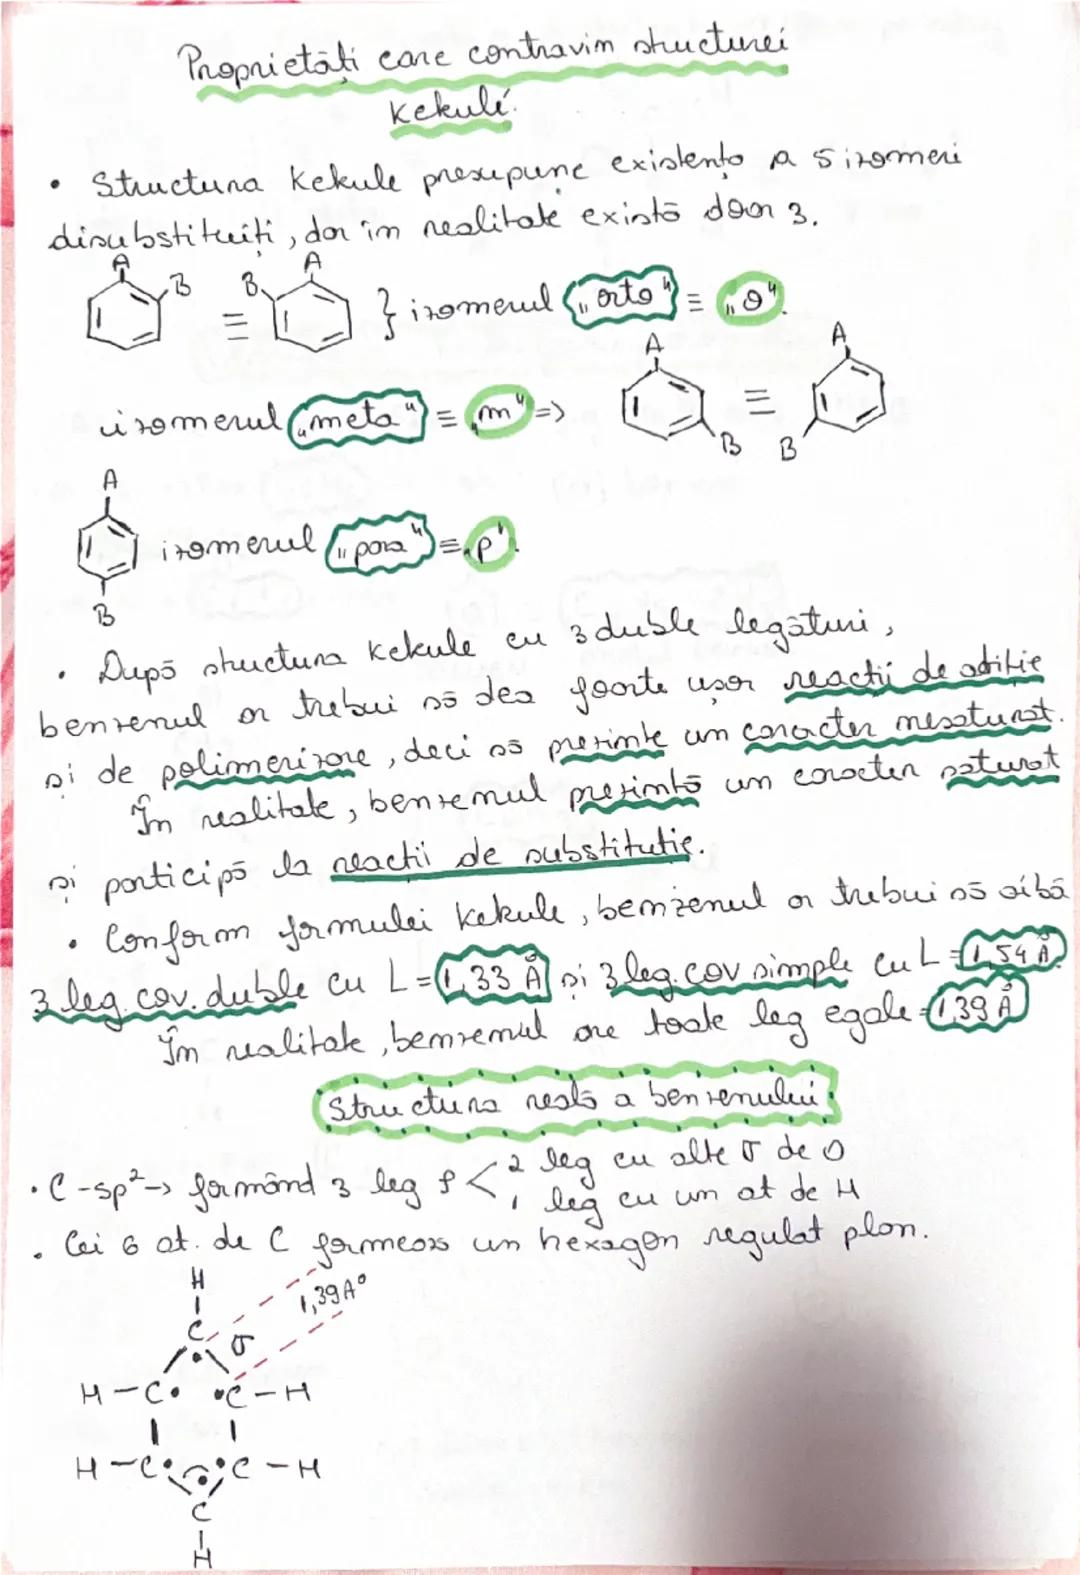 Proprietăți care contravin structurei
Kekulé.
• Structura Kekule presupune existența a 5 izomeri
disubstituiți, dar în realitate există doar 3.
A B ≡ B A } izomerul „orto" ≡ „o".
izomerul „meta" ≡ „m" => A B ≡ A B
A
izomerul „para" ≡ „p".
B
• După structura Kekule cu 3 duble legături,
benzenul ar trebui să dea foarte ușor reactii de adiție
și de polimerizare, deci să prezinte un caracter nesaturat.
În realitate, benzenul prezintă un caracter saturat
și participă la reactii de substitutie.
• Conform formulei Kekule, benzenul ar trebui să aibă
3 leg. cov. duble cu L = 1,33 Å și 3 leg. cov simple cu L = 1,54 Å.
În realitate, benzenul are toate leg egale = 1,39 Å
Structura reală a benzenului:
• C - sp² -> formând 3 leg < 2 leg cu alte σ de
1 leg cu un at de H
• Cei 6 at. de C formează un hexagon regulat plan.
H
1,39 A°
C σ
H - C C - H
H - C C - H
C
H